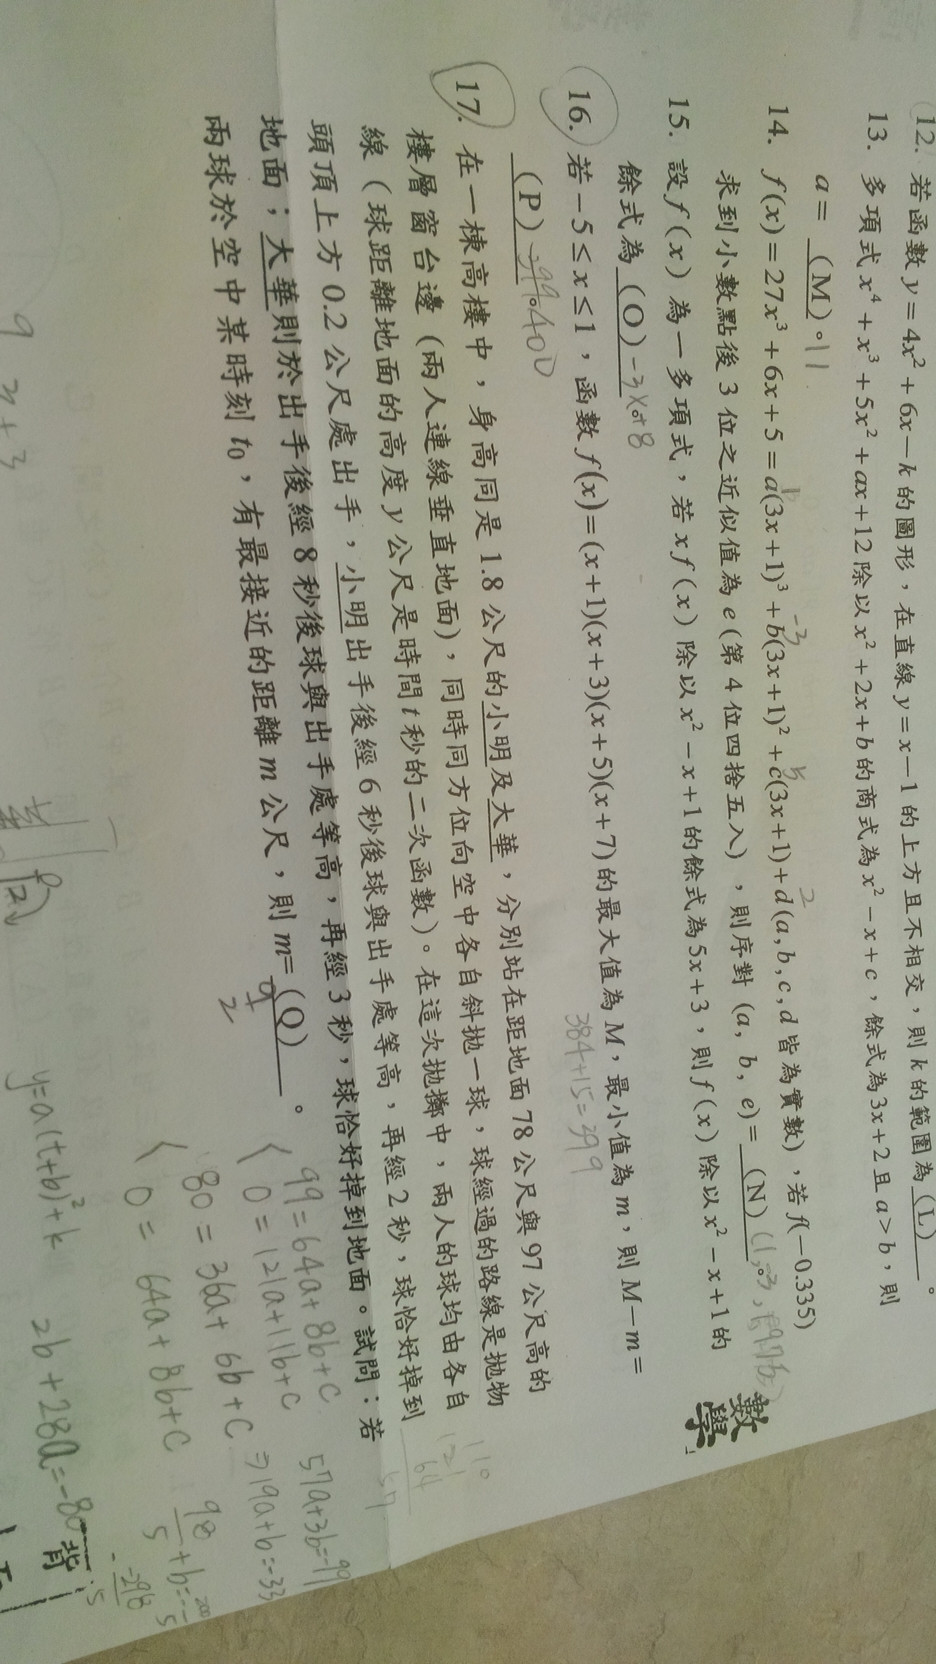 12. 若函數 y=4x²+6x-k 的圖形，在直線 y=x-1 的上方且不相交，則 k 的範圍為 (L) 。
13. 多項式 x⁴+x³+5x²+ax+12 除以 x²+2x+b 的商式為 x²-x+c，餘式為 3x+2 且 a>b，則
a= (M) 。11
14. f(x)=27x³+6x+5=a(3x+1)³+b(3x+1)²+c(3x+1)+d(a,b,c,d 皆為實數)，若 f(-0.335)
求到小數點後 3 位之近似值為 e (第 4 位四捨五入)，則序對 (a, b, e)= (N) 。
15. 設 f(x) 為一多項式，若 xf(x) 除以 x²-x+1 的餘式為 5x+3，則 f(x) 除以 x²-x+1 的
餘式為 (O) 。-3x+8
16. 若 -5≤x≤1，函數 f(x)=(x+1)(x+3)(x+5)(x+7) 的最大值為 M，最小值為 m，則 M-m=
(P) 。 400
384+15=399
17. 在一棟高樓中，身高同是 1.8 公尺的小明及大華，分別站在距地面 78 公尺與 97 公尺高的
樓層窗台邊 (兩人連線垂直地面)，同時同方位向空中各自斜拋一球，球經過的路線是拋物
線 (球距離地面的高度 y 公尺是時間 t 秒的二次函數)。在這次拋擲中，兩人的球均由各自
頭頂上方 0.2 公尺處出手，小明出手後經 6 秒後球與出手處等高，再經 2 秒，球恰好掉到
地面；大華則於出手後經 8 秒後球與出手處等高，再經 3 秒，球恰好掉到地面。試問：若
兩球於空中某時刻 t₀，有最接近的距離 m 公尺，則 m= (Q) 。
數學
99=64a+8b+c
0=121a+11b+c
80=36a+6b+c
0=64a+8b+c
57a+3b=-99
⇒19a+b=-33
y=a(t+b)²+k
2b+28a=-80
背